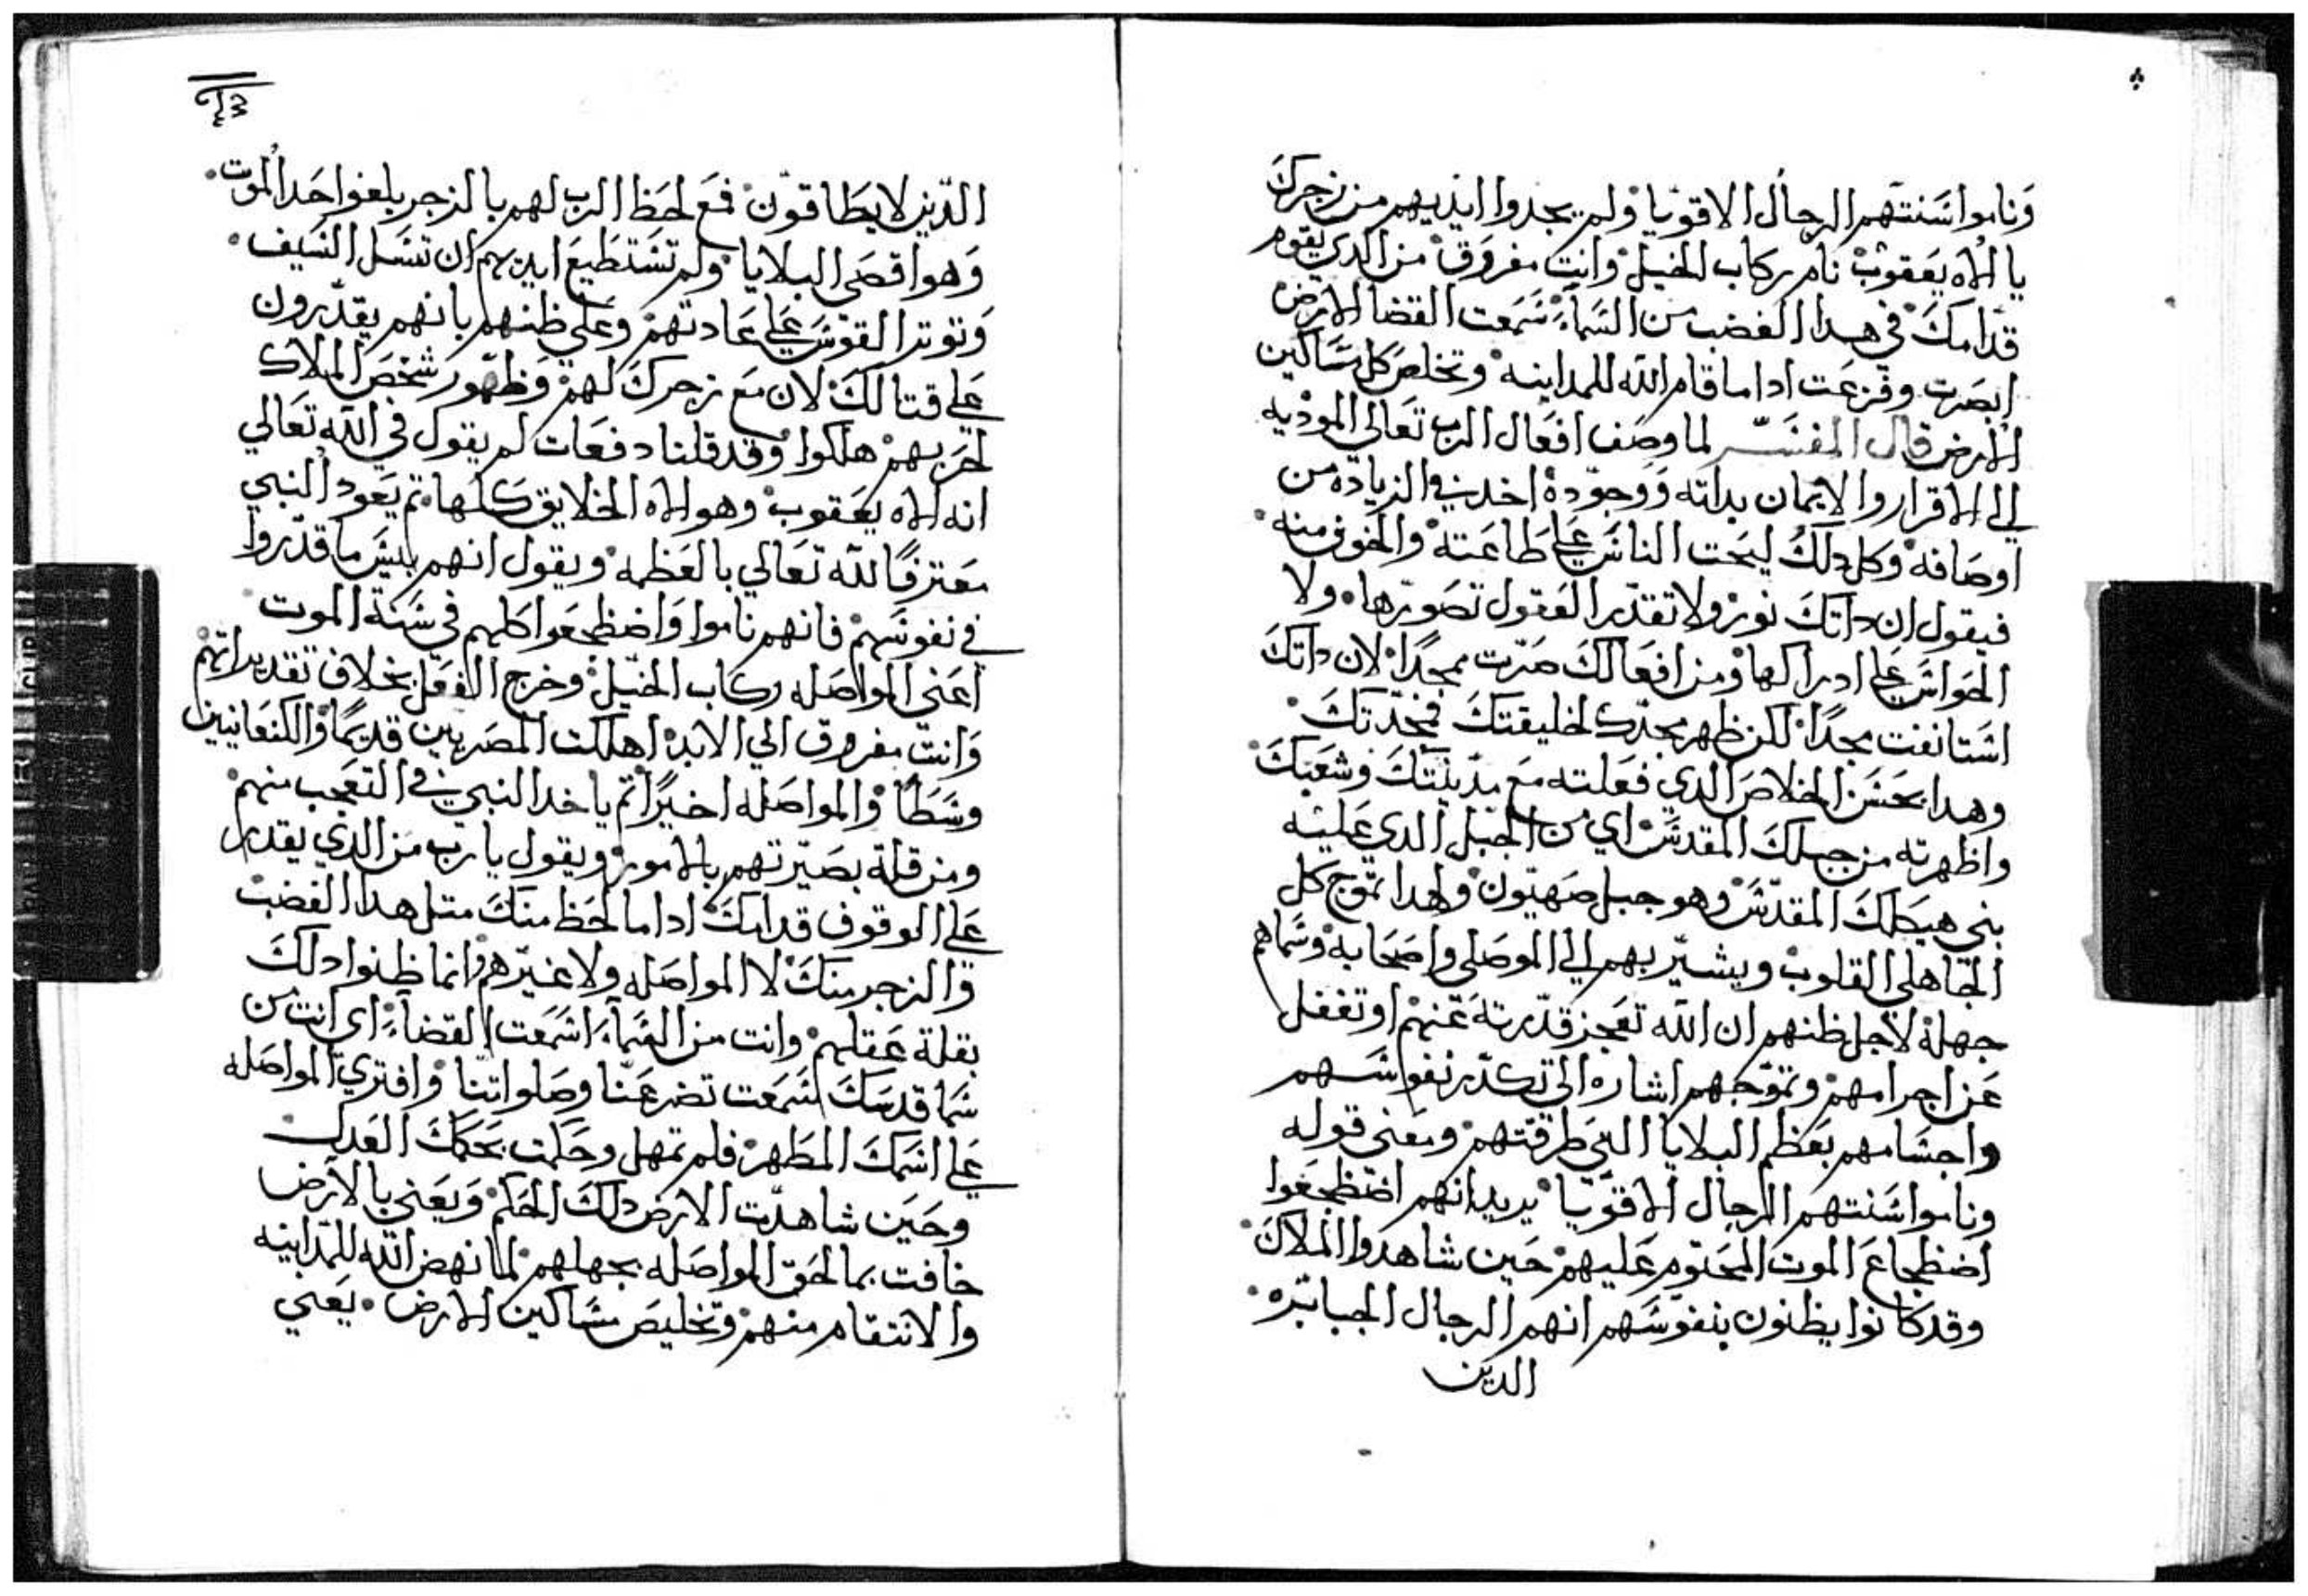 وناموا سنتهم الرجال الاقويا ولم يجدوا ايديهم من زجرك
يا الاه يعقوب نام ركاب الخيل وانت مفروق من الدي يقوم
قدامك في هدا الغضب من السماء سمعت القضا الارض
ابصرت وفزعت ادا ما قام الله للمداينه وتخلص كل مساكين
الارض قال المفسر لما وصف افعال الرب تعالى الموديه
الي الاقرار والايمان بداته ووجوده اخد في الزياده من
اوصافه وكل دلك ليحت الناس علي طاعته والخوف منه
فيقول ان داتك نور ولا تقدر العقول تصورها ولا
الحواس علي ادراكها ومن افعالك صرت ممجدا لان داتك
استانفت مجدا لكن ظهر مجدك لخليقتك فمجدتك
وهدا بحسن الخلاص الدي فعلته مع مدينتك وشعبك
واظهرته من جبلك المقدس اي من الجبل الدي عليه
بني هيكلك المقدس وهو جبل صهيون ولهدا تموج كل
الجاهلي القلوب ويشير بهم الي الموصلي واصحابه وسماهم
جهله لاجل ظنهم ان الله تعجز قدرته عنهم او تغفل
عن اجرامهم وتموجهم اشاره الى تكدر نفوسهم
واجسامهم بعظم البلايا التي طرقتهم ومعني قوله
وناموا سنتهم الرجال الاقويا يريد انهم اضطجعوا
اضطجاع الموت المحتوم عليهم حين شاهدوا الملاك
وقد كانوا يظنون بنفوسهم انهم الرجال الجبابره
الدين
الدين لا يطاقون فمع لحظ الرب لهم بالزجر بلغوا حد الموت
وهو اقصى البلايا ولم تستطيع ايديهم ان تسل السيف
وتوتر القوس علي عادتهم وعلى ظنهم بانهم يقدرون
علي قتالك لان مع زجرك لهم وظهور شخص الملاك
لحربهم هلكوا وقد قلنا دفعات لم يقول في الله تعالي
انه الاه يعقوب وهو الاه الخلايق كلها تم يعود النبي
معترفا لله تعالي بالعظمه ويقول انهم بيس ما قدروا
في نفوسهم فانهم ناموا واضطجعوا كلهم في سنة الموت
اعني المواصله ركاب الخيل وخرج الفعل بخلاف تقديراتهم
وانت مفروق الي الابد اهلكت المصريين قديما والكنعانيين
وسطا والمواصله اخيرا تم ياخد النبي في التعجب منهم
ومن قلة بصيرتهم بالامور ويقول يا رب من الدي يقدر
علي الوقوف قدامك ادا ما لحظ منك متل هدا الغضب
والزجر منك لا المواصله ولا غيرهم وانما ظنوا دلك
بقلة عقلهم وانت من السماء اسمعت القضاء اي انت من
سما قدسك سمعت تضرعنا وصلواتنا وافتري المواصله
علي اسمك المطهر فلم تمهل وحكمت بحكمك العدل
وحين شاهدت الارض دلك الحكم ويعني بالارض
خافت بما لحق المواصله بجهلهم لما نهض الله للمداينه
والانتقام منهم وتخليص مساكين الارض يعني